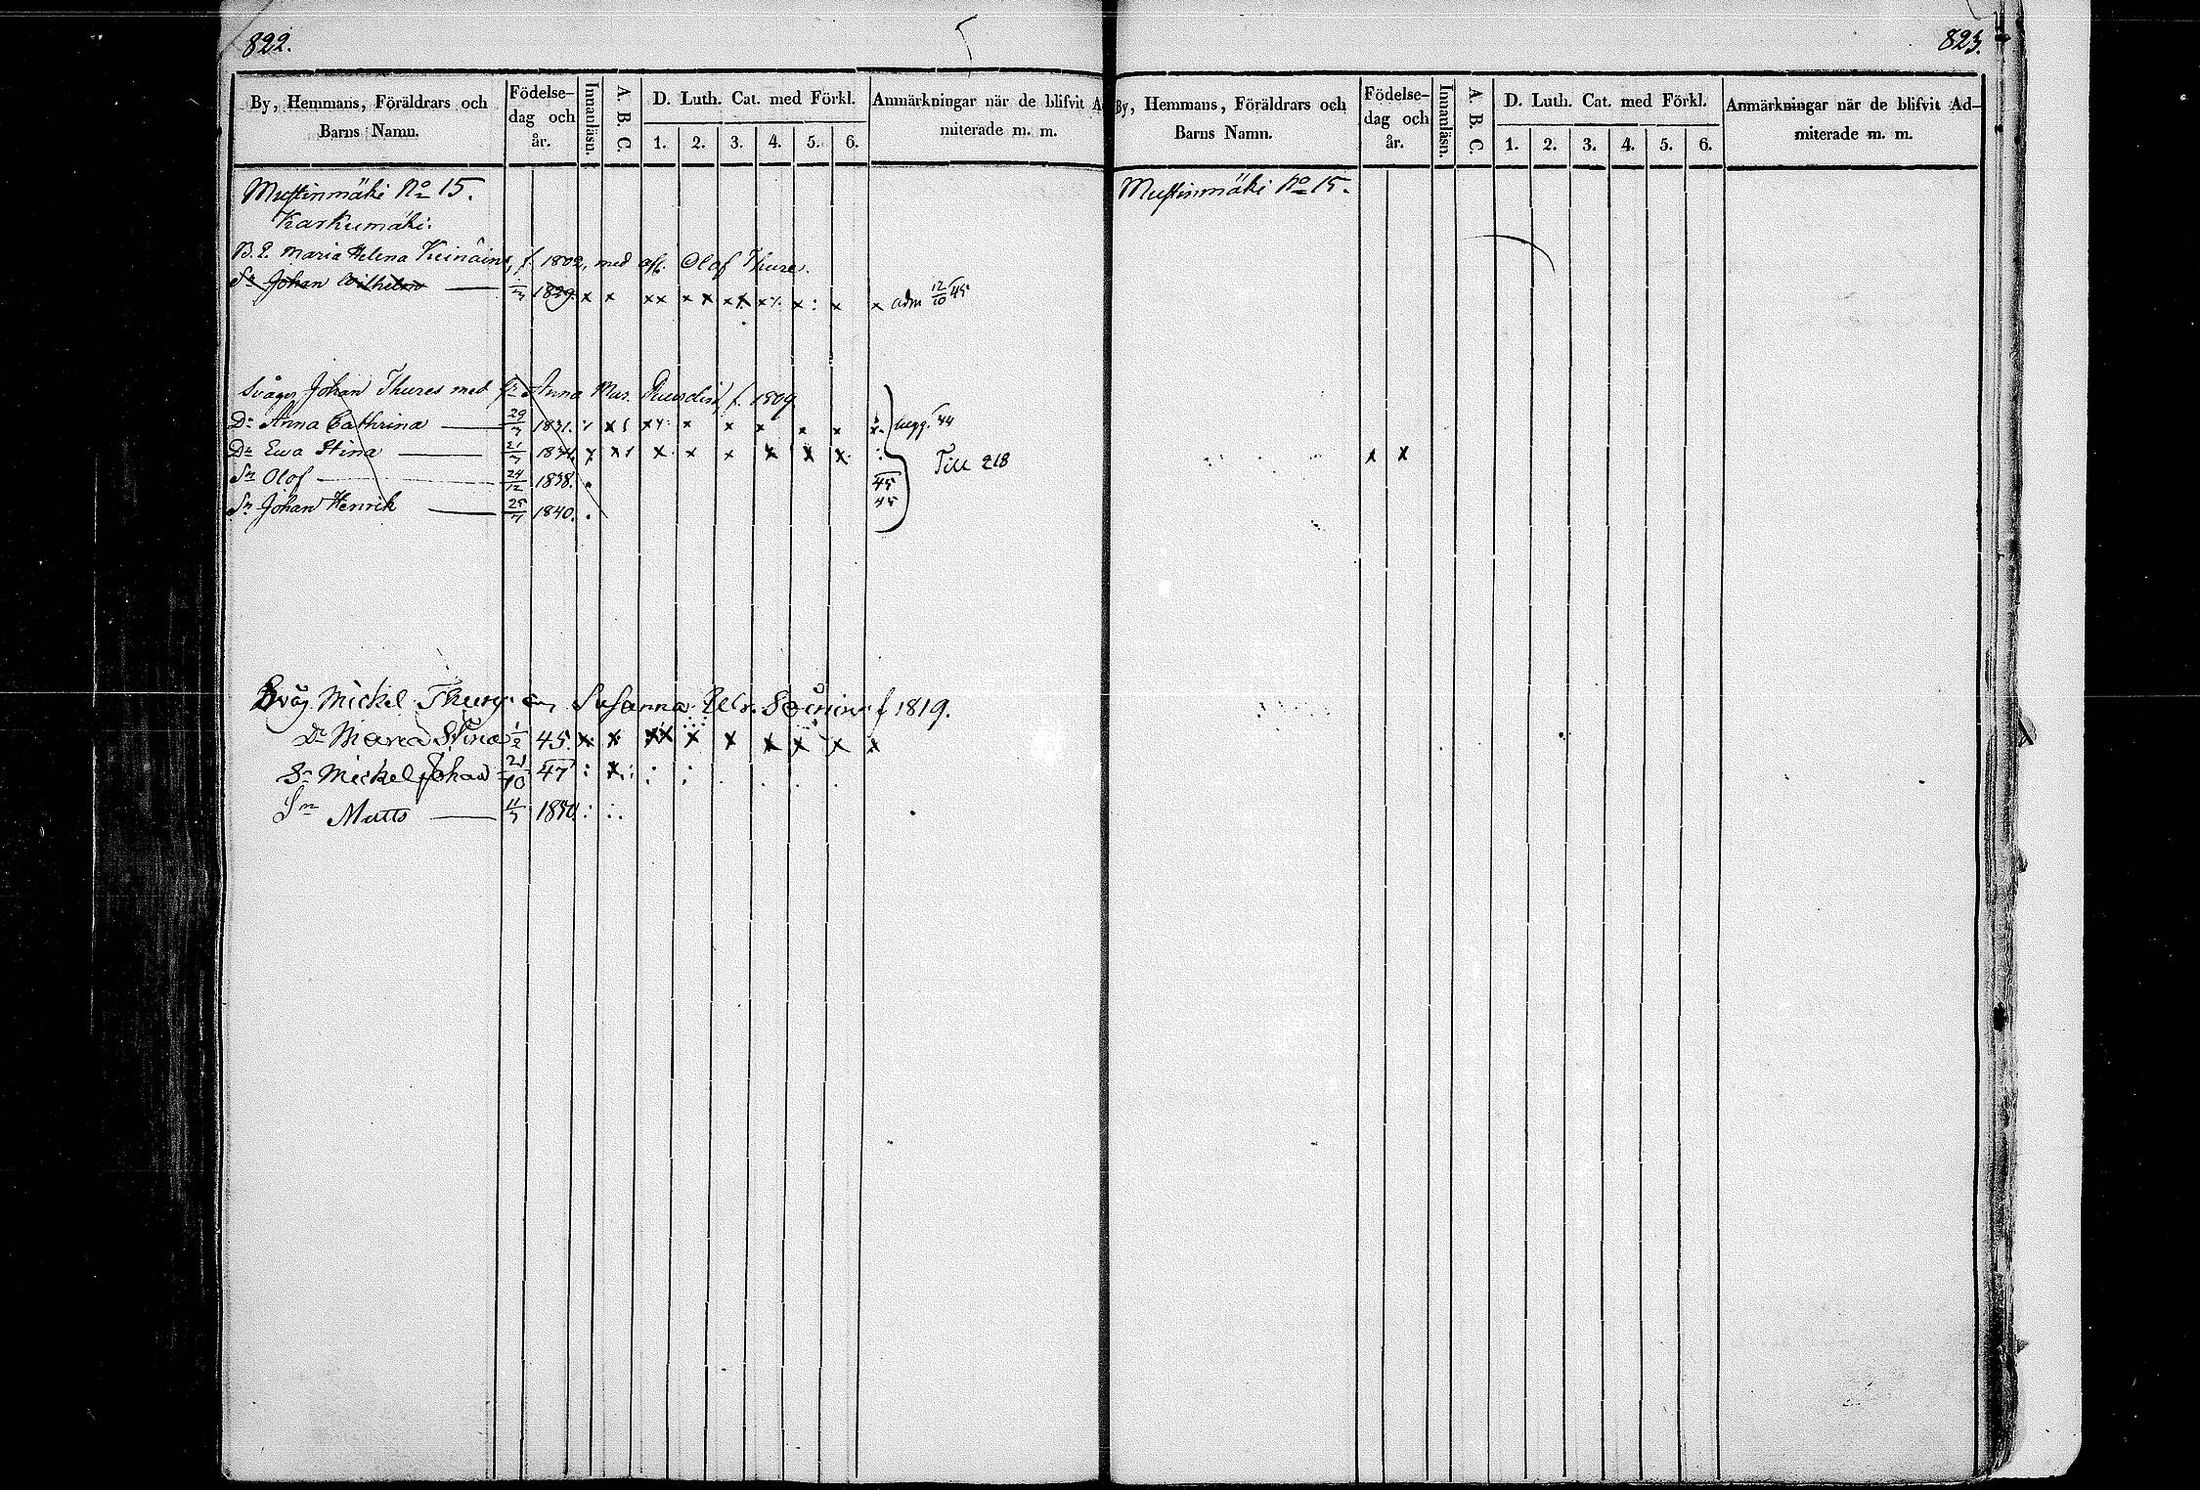 822.
By, Hemmans, Föräldrars och Barns Namn. Födelse-dag och år. Innanläsn. A. B. C. D. Luth. Cat. med Förkl. 1. 2. 3. 4. 5. 6. Anmärkningar när de blifvit Ad-miterade m. m.
Mustinmäki No 15.
Karkumäki.
B. E. Maria Helena Keinäin, f. 1802, med afl. Olof Thure.
Sn Johan Wilhelm 1829. x x xx x x x x x x x x adm 12/10 45
Svåger Johan Thures med Anna Mar. f. 1809
Dr Anna Cathrina 29/7 1831. x x x x x x x begg. 44
Dr Ewa Stina 21/7 1834. x x x x x x x x Till 218
Sn Olof 24/12 1838. 45
Sn Johan Henrik 25/7 1840. 45
Svåg. Mickel Thure Susanna Ulr. f 1819.
Dr Maria Stina 1/2 45. x x xx x x x x x x
Sn Mickel Johan 21/10 47
Sn Matts 11/5 1850
823.
By, Hemmans, Föräldrars och Barns Namn. Födelse-dag och år. Innanläsn. A. B. C. D. Luth. Cat. med Förkl. 1. 2. 3. 4. 5. 6. Anmärkningar när de blifvit Ad-miterade m. m.
Mustinmäki No 15.
x x